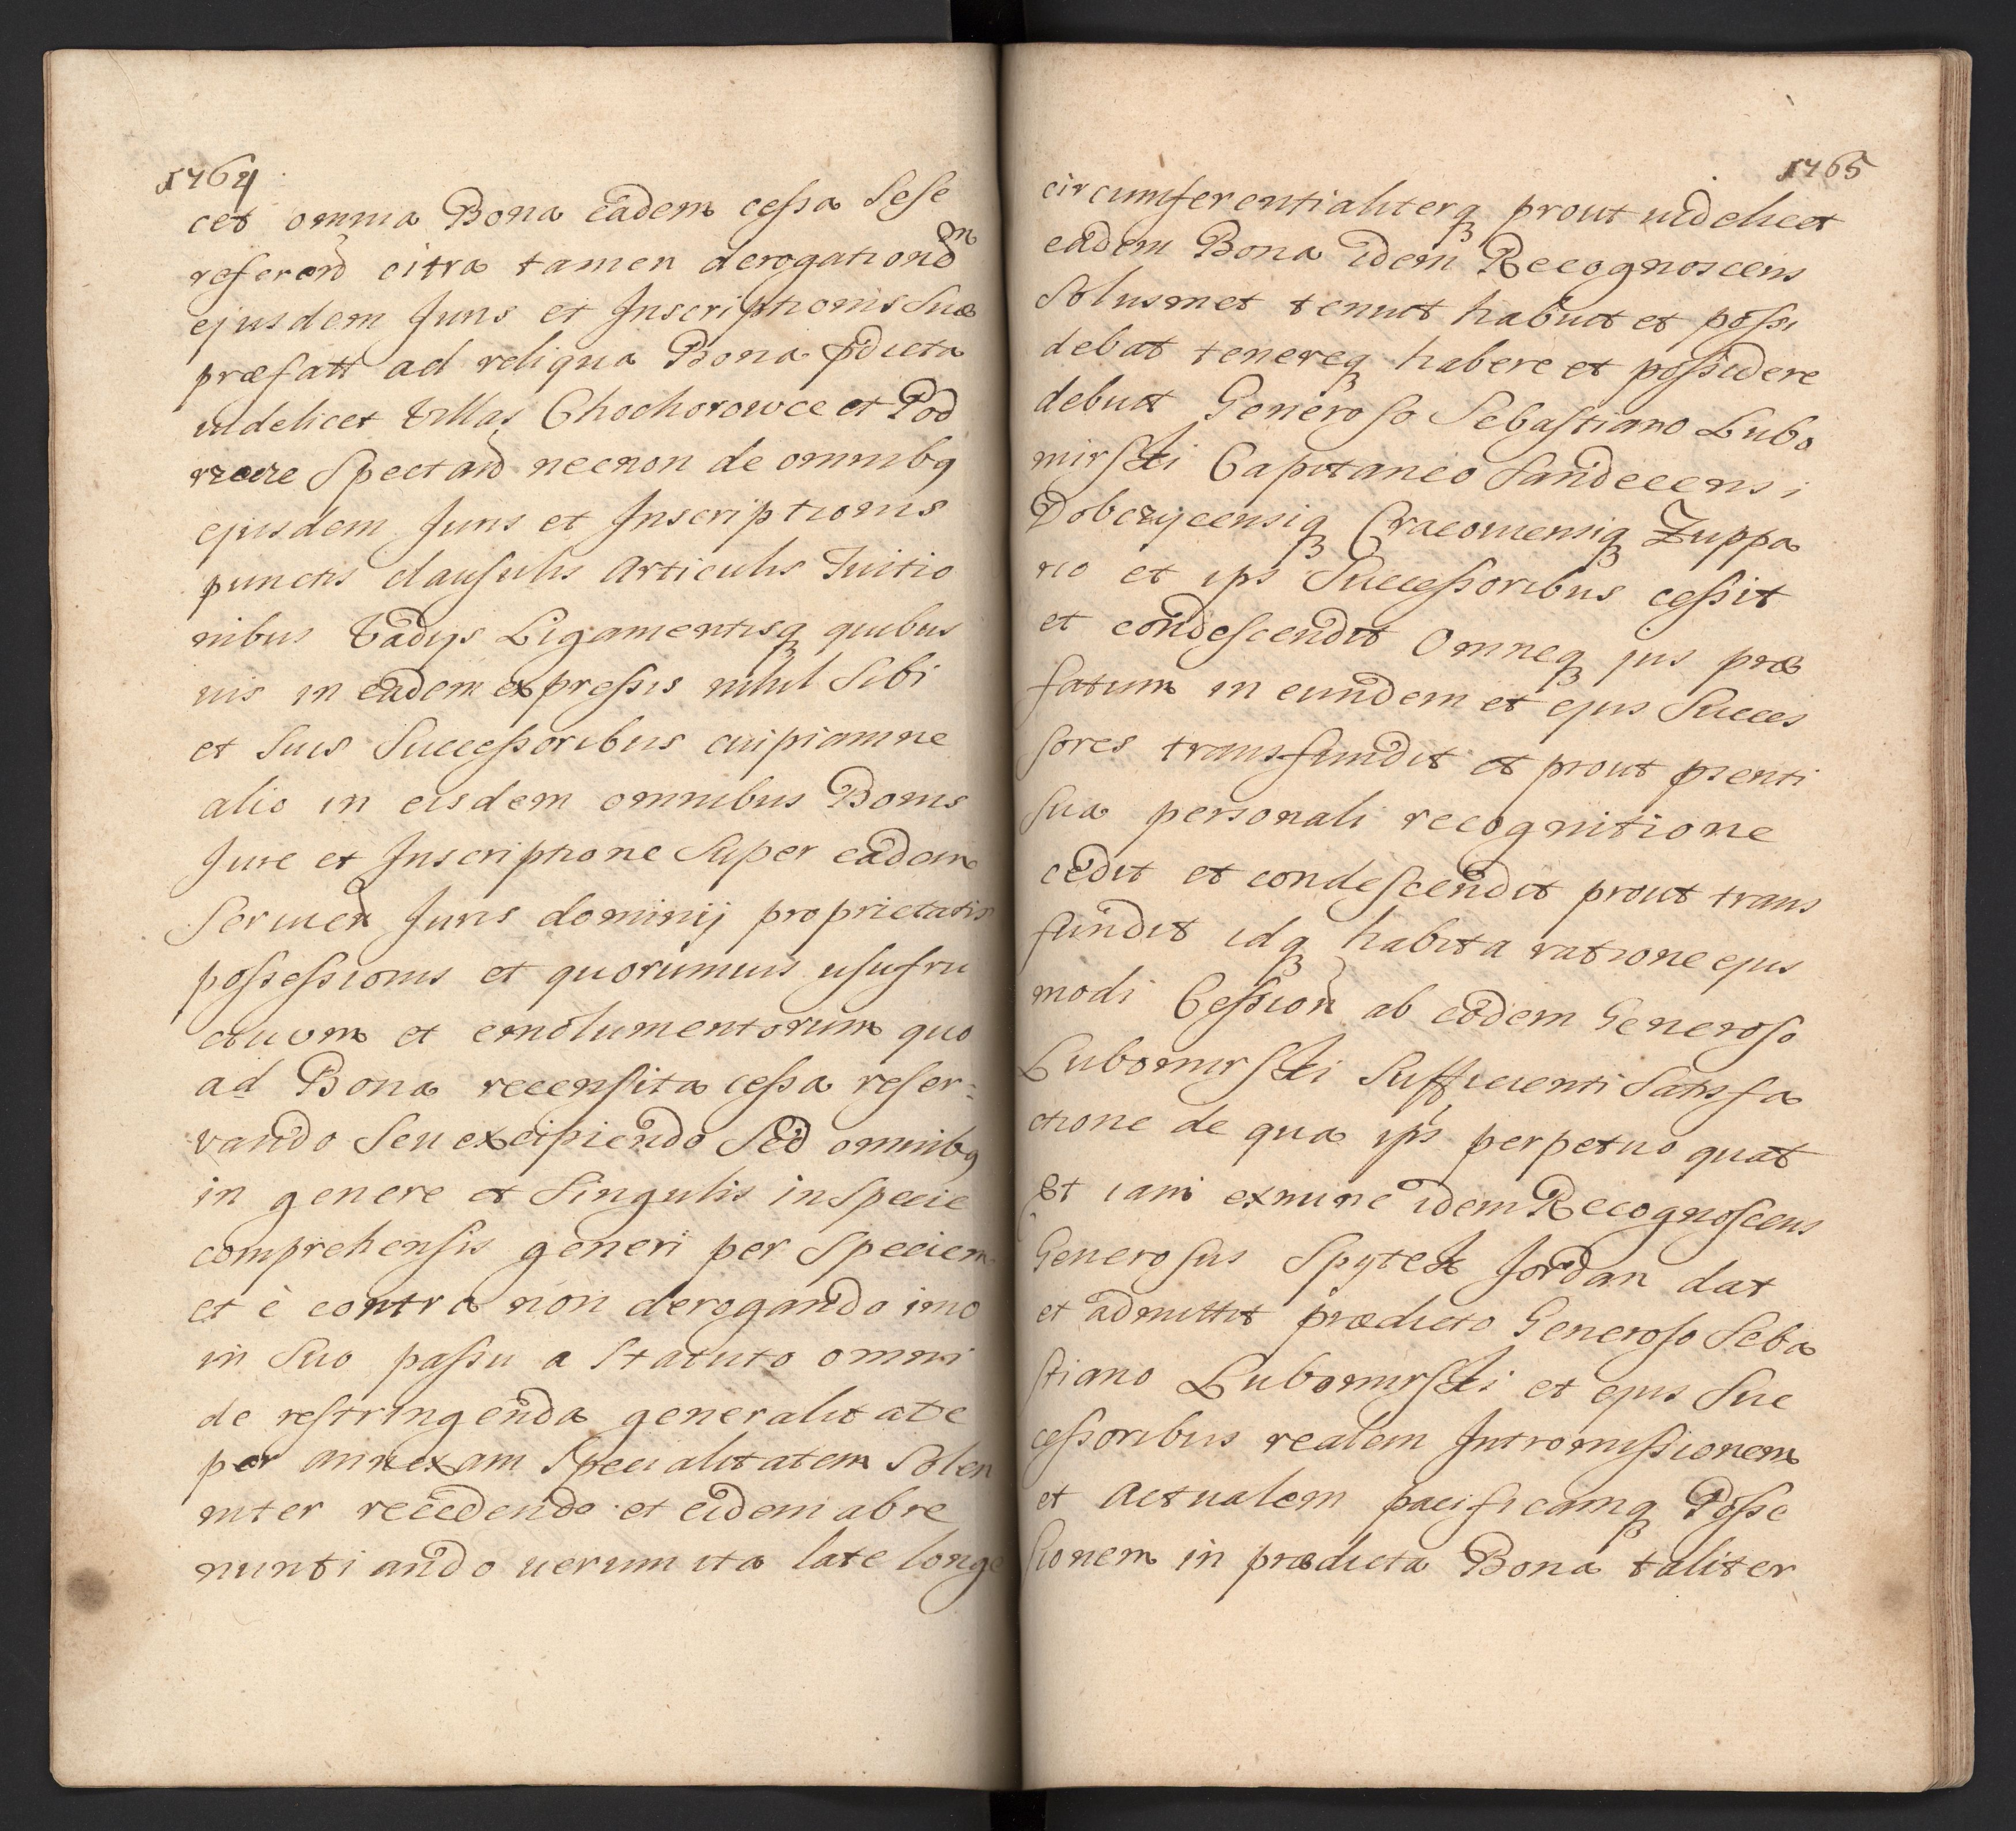 1764
cet omnia Bona eadem cessa sese
referend citra tamen derogationem
ejusdem Juris et Inscriptionis Suæ
præfatt ad reliqua Bona pdicta
videlicet Villas Chochorowce et Pod
rzecze Spectand necnon de omnibq
ejusdem Juris et Inscriptionis
punctis clausulis Articulis Tuitio
nibus Vadijs Ligamentisq quibus
vis in eadem expressis nihil Sibi
et Suis Successoribus cuipiamne
alio in eisdem omnibus Bonis
Jure et Inscriptione Super eadem
Servien Juris dominij proprietatis
possessionis et quorumvis usufru
ctuum et emolumentorum quo
ad Bona recensita cessa reser=
vando Seu excipiendo Sed omnibq
in genere et Singulis in Specie
comprehensis generi per Speciem
et è contra non derogando imo
in Suo passu a Statuto omni
de restringenda generalitate
per annexam Specialitatem Solen
niter recedendo et eidem abre
nuntiando verum ita late longe
1765
circumferentialiterq prout videlicet
eadem Bona idem Recognoscens
Solusmet tenuit habuit et possi
debat tenereq habere et possidere
debuit Generoso Sebastiano Lubo
mirski Capitaneo Sandecensi
Dobczycensiq Cracoviensiq Zuppa
rio et ips Successoribus cessit
et condescendit Omneq jus præ
fatum in eundem et ejus Succes
sores transfundit et prout pienti
sua personali recognitione
cedit et condescendit prout trans
fundit idq habita ratione ejus
modi Cession ab eodem Generoso
Lubomirski Sufficienti Satisfa
ctione de qua ips perpetuo quat
Et iam exnunc idem Recognoscens
Generosus Spytek Jordan dat
et admittit prædicto Generoso Seba
stiano Lubomirski et ejus Suc
cessoribus realem Intromissionem
et Actualem pacificamq Posse
sionem in prædicta Bona taliter